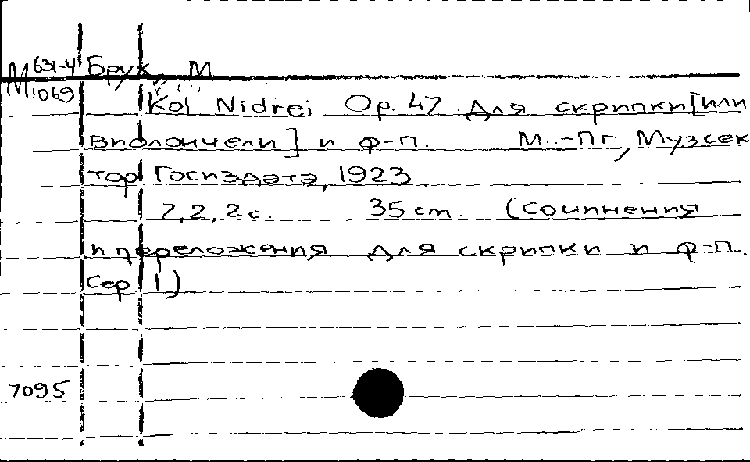 М 631-4 Брук, М
1069
Kol Nidrei Op. 47 для скрипки [или
виолончели] и ф-п. М.-Пг, Музсек
тор Госиздата, 1923
7,2,2 с. 35 cm. (Сочинения
и переложения для скрипки и ф-п.
Сер 1)
7095